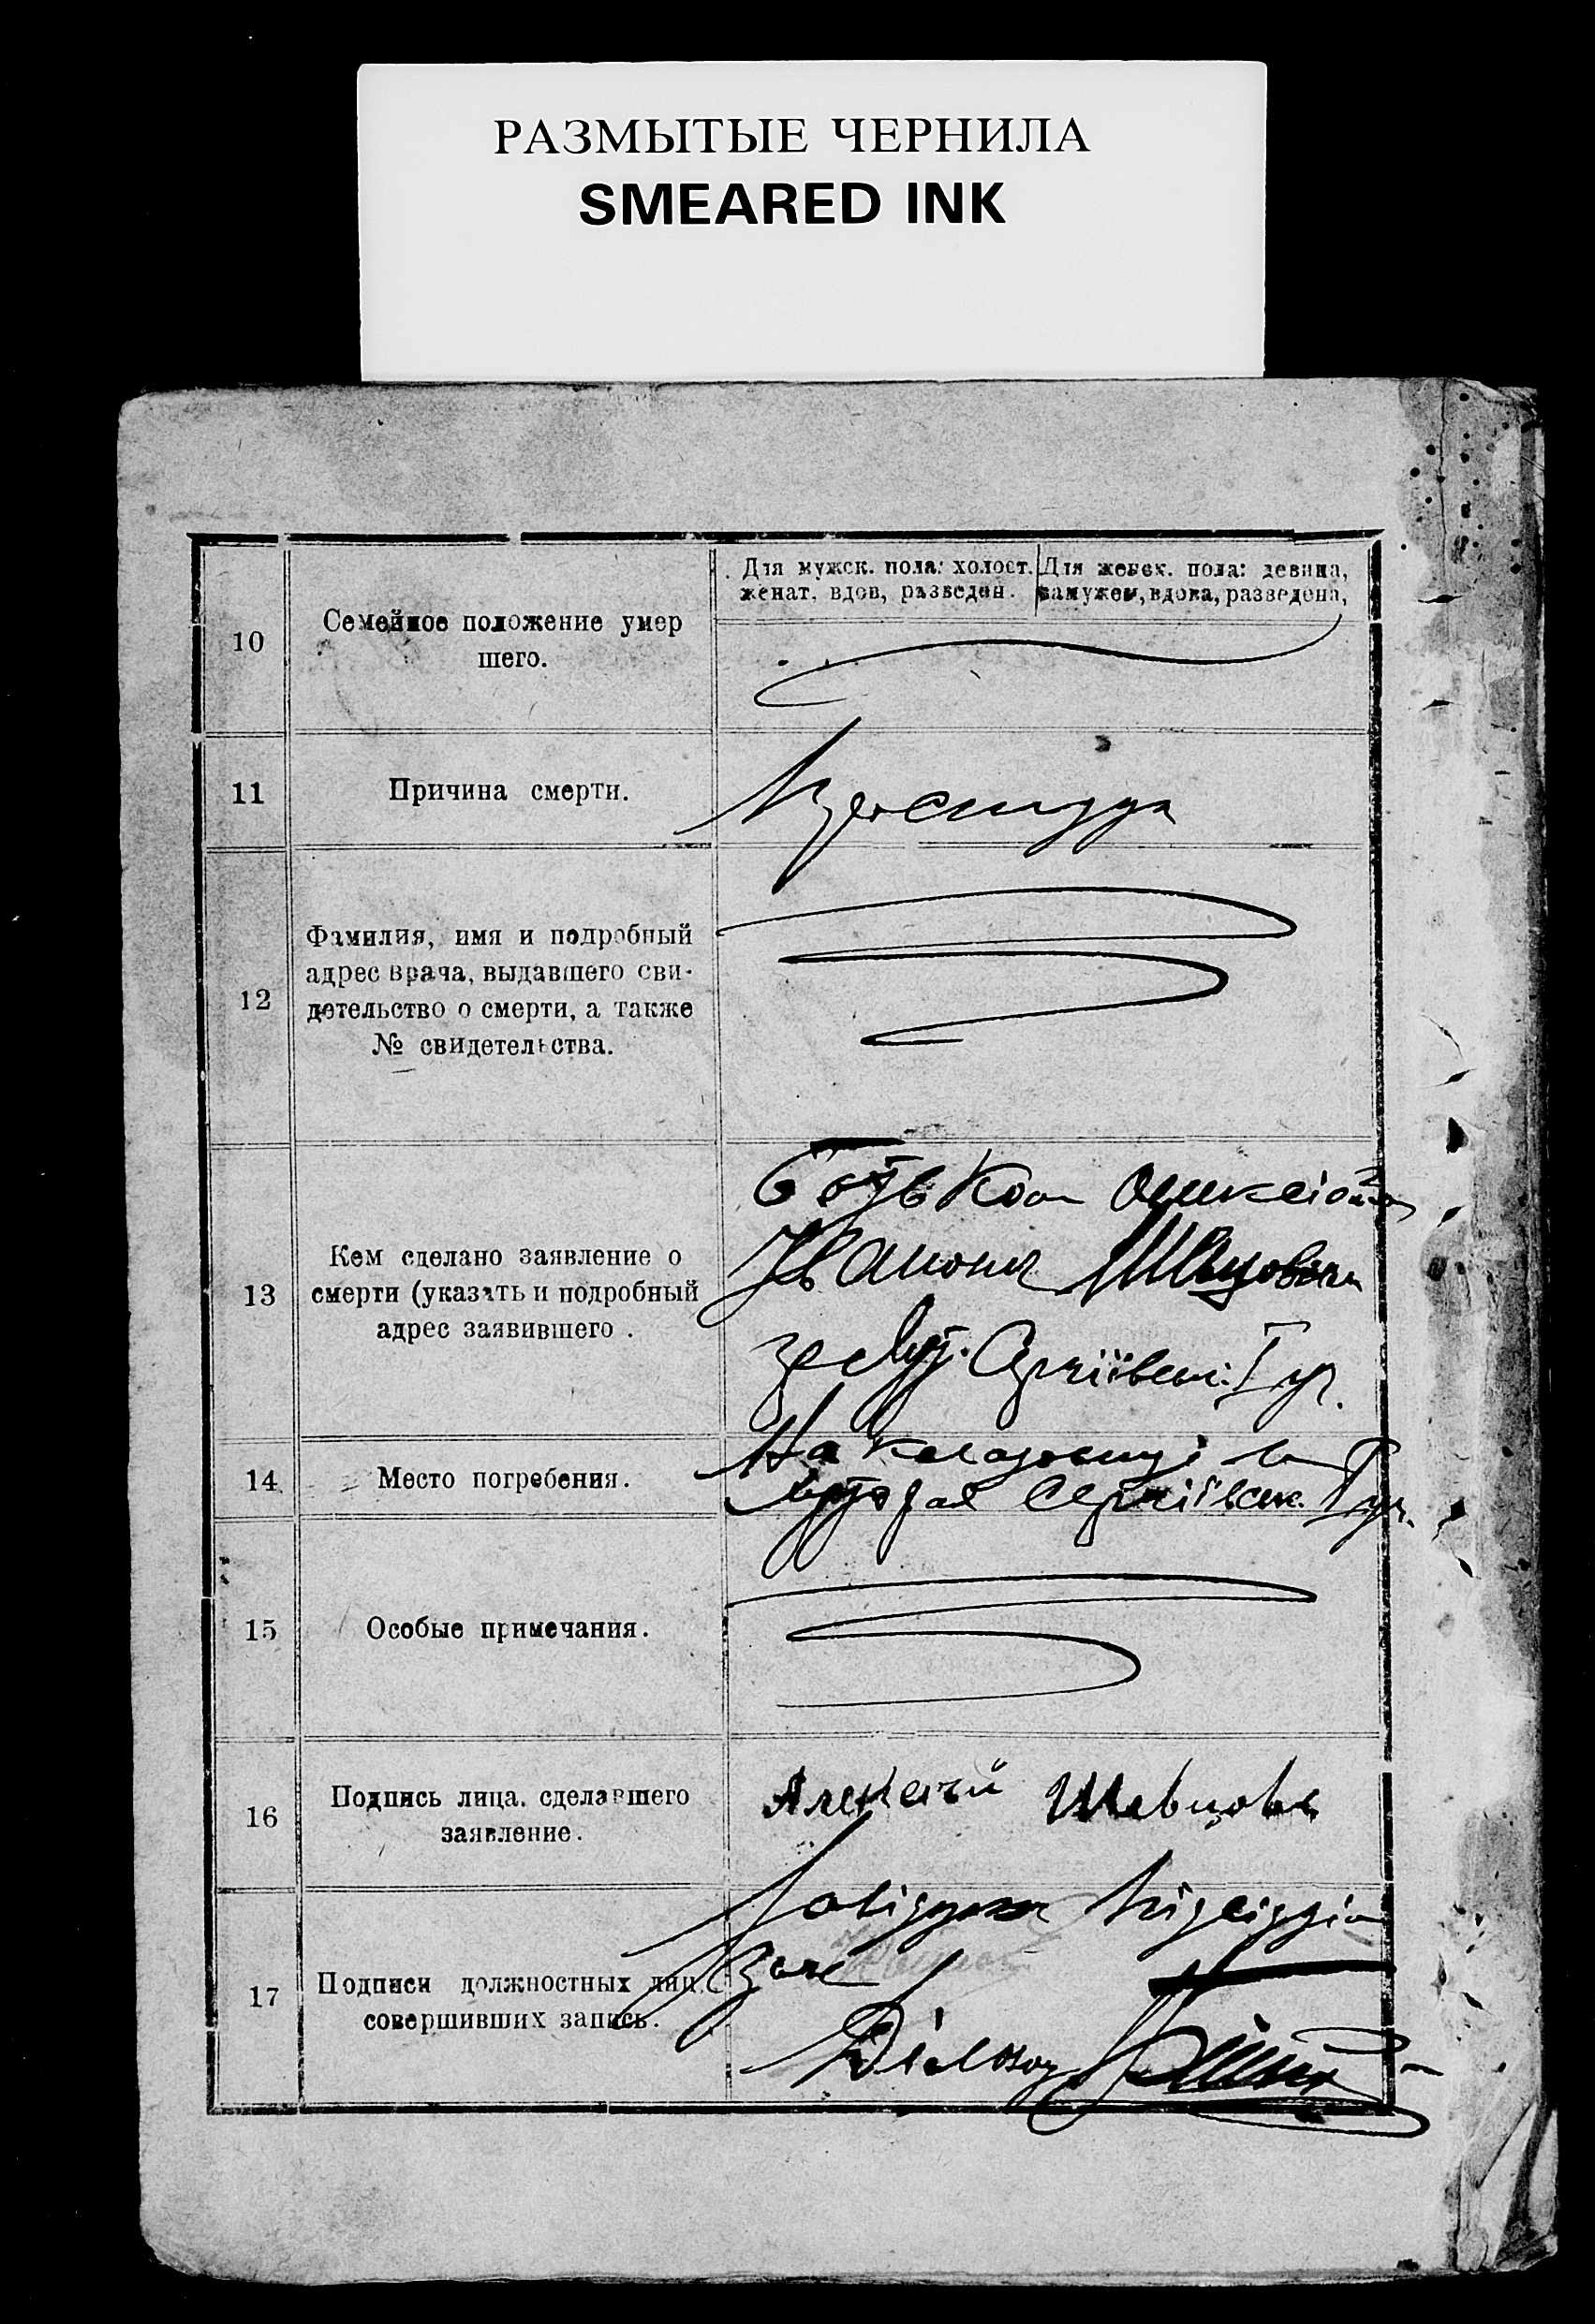 РАЗМЫТЫЕ ЧЕРНИЛА
SMEARED INK
10
Семейное положение умер
шего.
Для мужск. пола: холост.
женат, вдов, разведен.
Для женск. пола: девица,
замужем, вдова, разведена,
11
Причина смерти.
12
Фамилия, имя и подробный
адрес врача, выдавшего сви-
детельство о смерти, а также
№ свидетельства.
13
Кем сделано заявление о
смерти (указать и подробный
адрес заявившего .
Батьком Олексіом
Івановим Шевцовим
Сергіївськ.
14
Место погребения.
На
Сергіївськ.
15
Особые примечания.
16
Подпись лица, сделавшего
заявление.
Алексей Шевцовъ
17
Подписи должностных лиц,
совершивших запись.
Завідуючий
Діловод